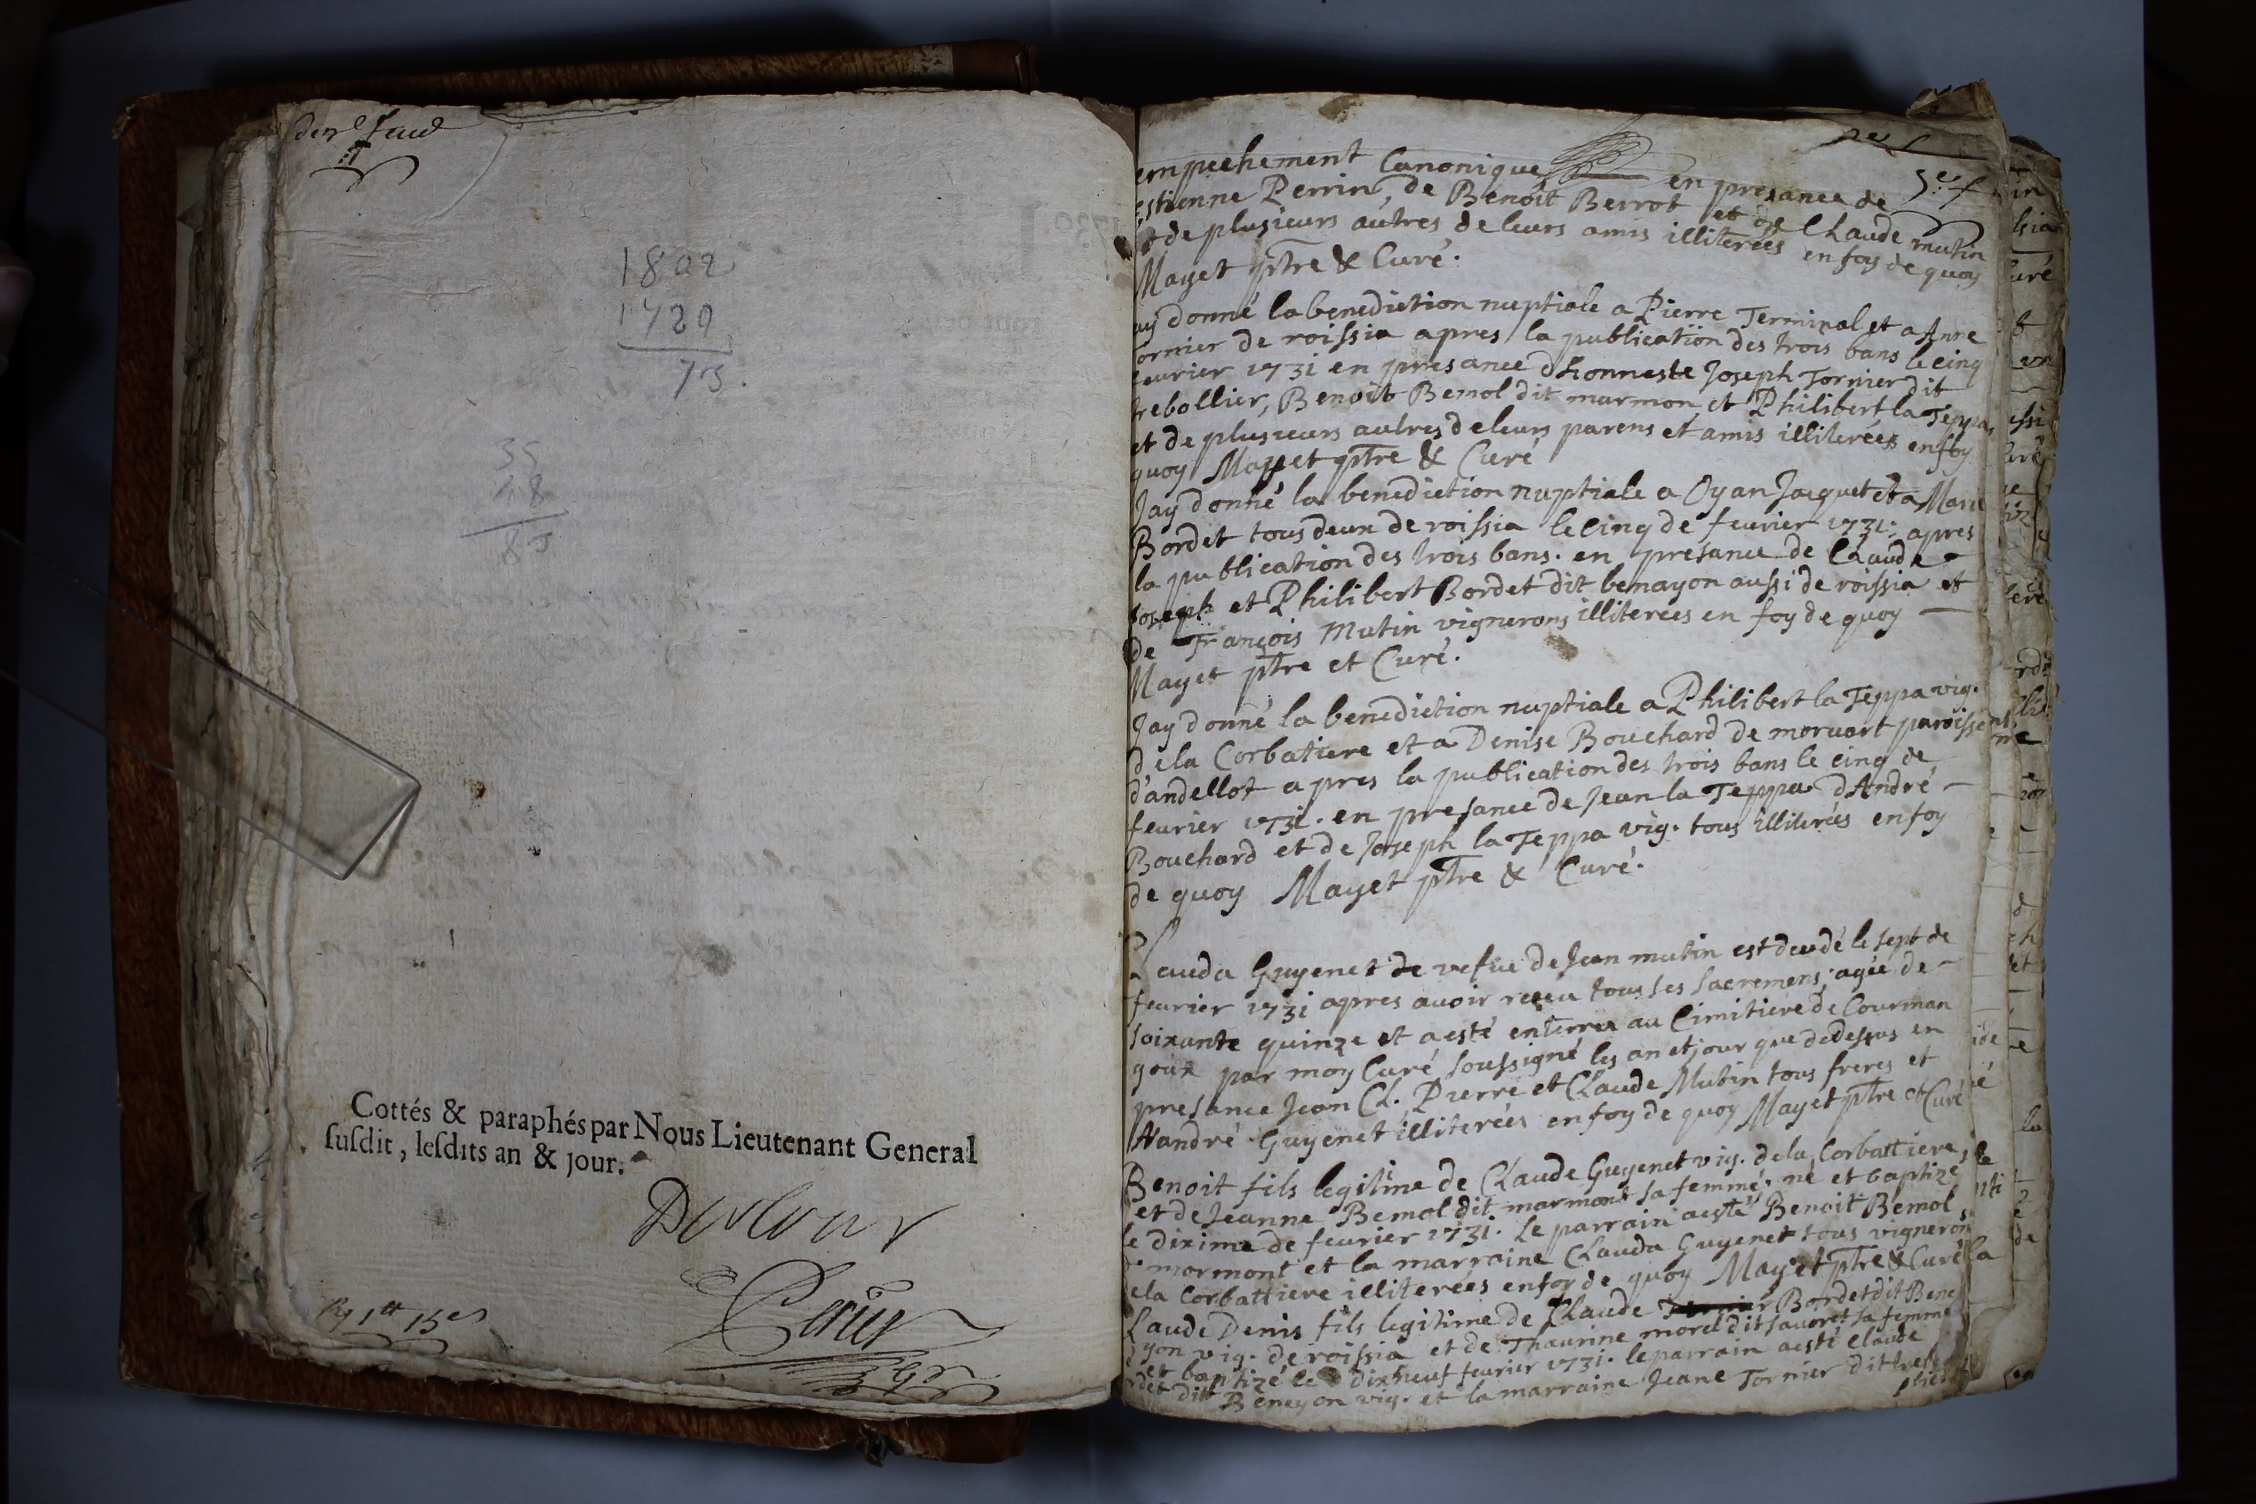 1802
1729
73.
35
48
83
Cottés & paraphés par Nous Lieutenant General
susdit, lesdits an & jour.
empechement Canonique en presance de
estienne Perrin, de Benoit Berrot et de Claude mutin
et de plusieurs autres de leurs amis illiterées en foy de quoy
Mayet ptre & Curé.
ay donné la benediction nuptiale a Pierre Terminal et a Anne
ornier de roissia apres la publication des trois bans le cinq
feurier 1731 en presance d'honneste Joseph Tornier dit
trebollier, Benoit Bemol dit marmon et Philibert la Teppa
et de plusieurs autres de leurs parens et amis illiterées en foy
quoy Mayet ptre & Curé
Jay donné la benediction nuptiale a Oyan Jacquet et a Marie
Bordet tous deux de roissia le cinq de feurier 1731. apres
la publication des trois bans. en presance de Claude
Joseph et Philibert Bordet dit benayon aussi de roissia et
de François Mutin vignerons illiterées en foy de quoy
Mayet ptre et Curé.
Jay donné la benediction nuptiale a Philibert la Teppa vig.
de la Corbatiere et a Denise Bouchard de morvart paroisse
d'andellot apres la publication des trois bans le cinq de
feurier 1731. en presance de Jean la Teppa d'André
Bouchard et de Joseph la Teppa vig. tous illiterées en foy
de quoy Mayet ptre & Curé.
Clauda Guyenet de vefue de Jean mutin est decedé le sept de
feurier 1731 apres auoir receu tous ses sacremens, agée de
soixante quinze et a esté enterrée au Cimitiere de Courman
goux par moy Curé soussigné les an et jour que de dessus en
presance Jean Cl. Pierre et Claude Mutin tous freres et
d'andré Guyenet illiterées en foy de quoy Mayet ptre et Curé
Benoit fils legitime de Claude Guyenet vig. de la Corbattiere
et de Jeanne Bemol dit marmont sa femme. né et baptizé
le dixime de feurier 1731. Le parrain aesté Benoit Bemol
mormont et la marraine Clauda Guyenet tous vigneron
de la Corbattiere illiterées en foy de quoy Mayet ptre & Curé
Claude Denis fils legitime de Claude Bordet dit Bene
yon vig. de roissia et de Thaurine morel dit sauoret sa femme
et baptizé le dixneuf feurier 1731. le parrain aesté Claude
rdet dit Beneyon vig. et la marraine Jeane Tornier dit trebo